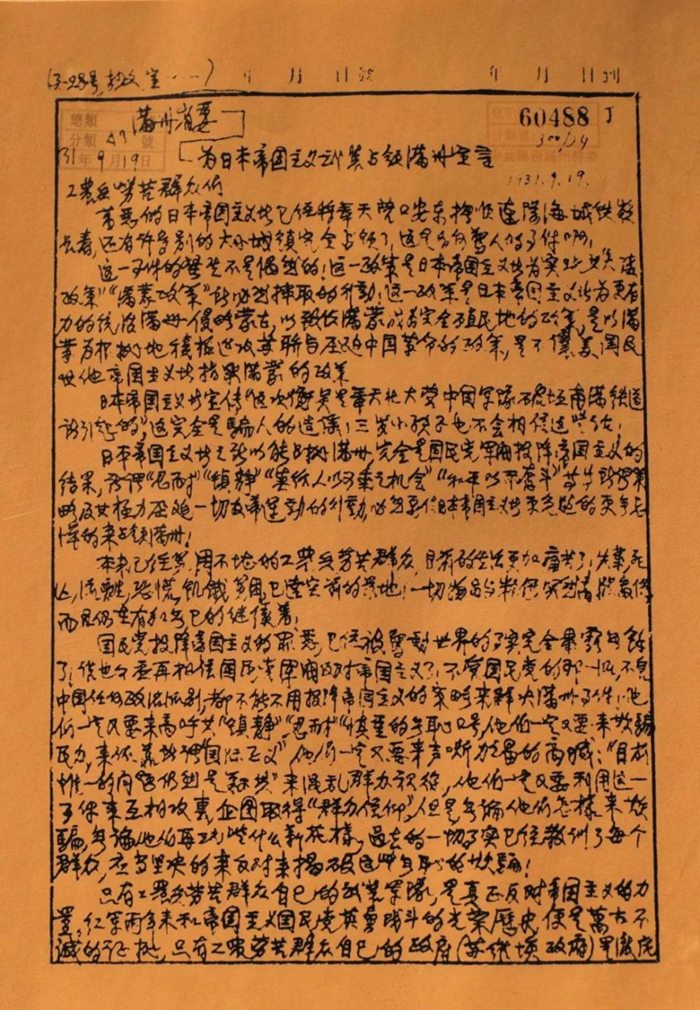 年 月 日 年 月 日
满州省委
60488 J
总类
分類 43 號
31年9月19日
300/24
为日本帝国主义武装占领满洲宣言
1931.9.19.
工农兵劳苦群众们
万恶的日本帝国主义者已经将奉天营口安东抚顺辽阳海城铁岭
长春,还有许多别的大小城镇完全占领了,这是多么惊人的事件啊!
这一事件的发生不是偶然的!这一政策是日本帝国主义者为实现其“大陆
政策”“满蒙政策”所必然采取的行动!这一政策是日本帝国主义者为更有
力的统治满州侵略蒙古,以致使满蒙成为完全殖民地的政策,是以满
蒙为根据地积极进攻苏联与压迫中国革命的政策,是不让美国及
其他帝国主义者指染满蒙的政策
日本帝国主义者宣传“这次冲突是奉天北大营中国军队破坏南满铁道
所引起的”,这完全是骗人的造谣,三岁小孩子也不会相信这些话!
日本帝国主义者之所以能占据满州,完全是国民党军阀投降帝国主义的
结果,所谓“忍耐”“镇静”“莫给人以可乘之机会”“和平以示奋斗”等等的策
略及其极力压迫一切反帝运动的行动,必然要使日本帝国主义者更急烈的更无忌
惮的来占领满州!
本来已经不堪的工农兵劳苦群众,目前的生活更加痛苦了,失业,死
亡,流离,恐慌,饥饿等
而且仍在有加无已的继续着,
国民党投降帝国主义的罪恶,已经被震动世界的事实完全暴露无余
了,谁也不要再相信国民党军阀反对帝国主义了,不管国民党的那一派,不管
中国任何政治派别,都不能不用投降帝国主义的策略来解决满州事件,他
们一定又要来高呼其“镇静”“忍耐”“慎重的无耻口号,他们一定又要来欺骗
民众,来依靠所谓“国际正义”他们一定又要来声嘶力竭的高喊:“目前
唯一的问题仍然是剿共”来混乱群众视线,他们一定又要利用这一
事件来互相攻击,企图取得“群众信仰”,但是无论他们怎样来欺
骗,无论他们再玩些什么新花样,过去的一切事实已经教训了每个
群众,应当坚决的来反对来揭破这些无耻的欺骗!
只有工农兵劳苦群众自己的武装军队,是真正反对帝国主义的力
量,红军两年来和帝国主义国民党英勇战斗的光荣历史,便是万古不
灭的证据,只有工农劳苦群众自己的政府(苏维埃政府)是彻底